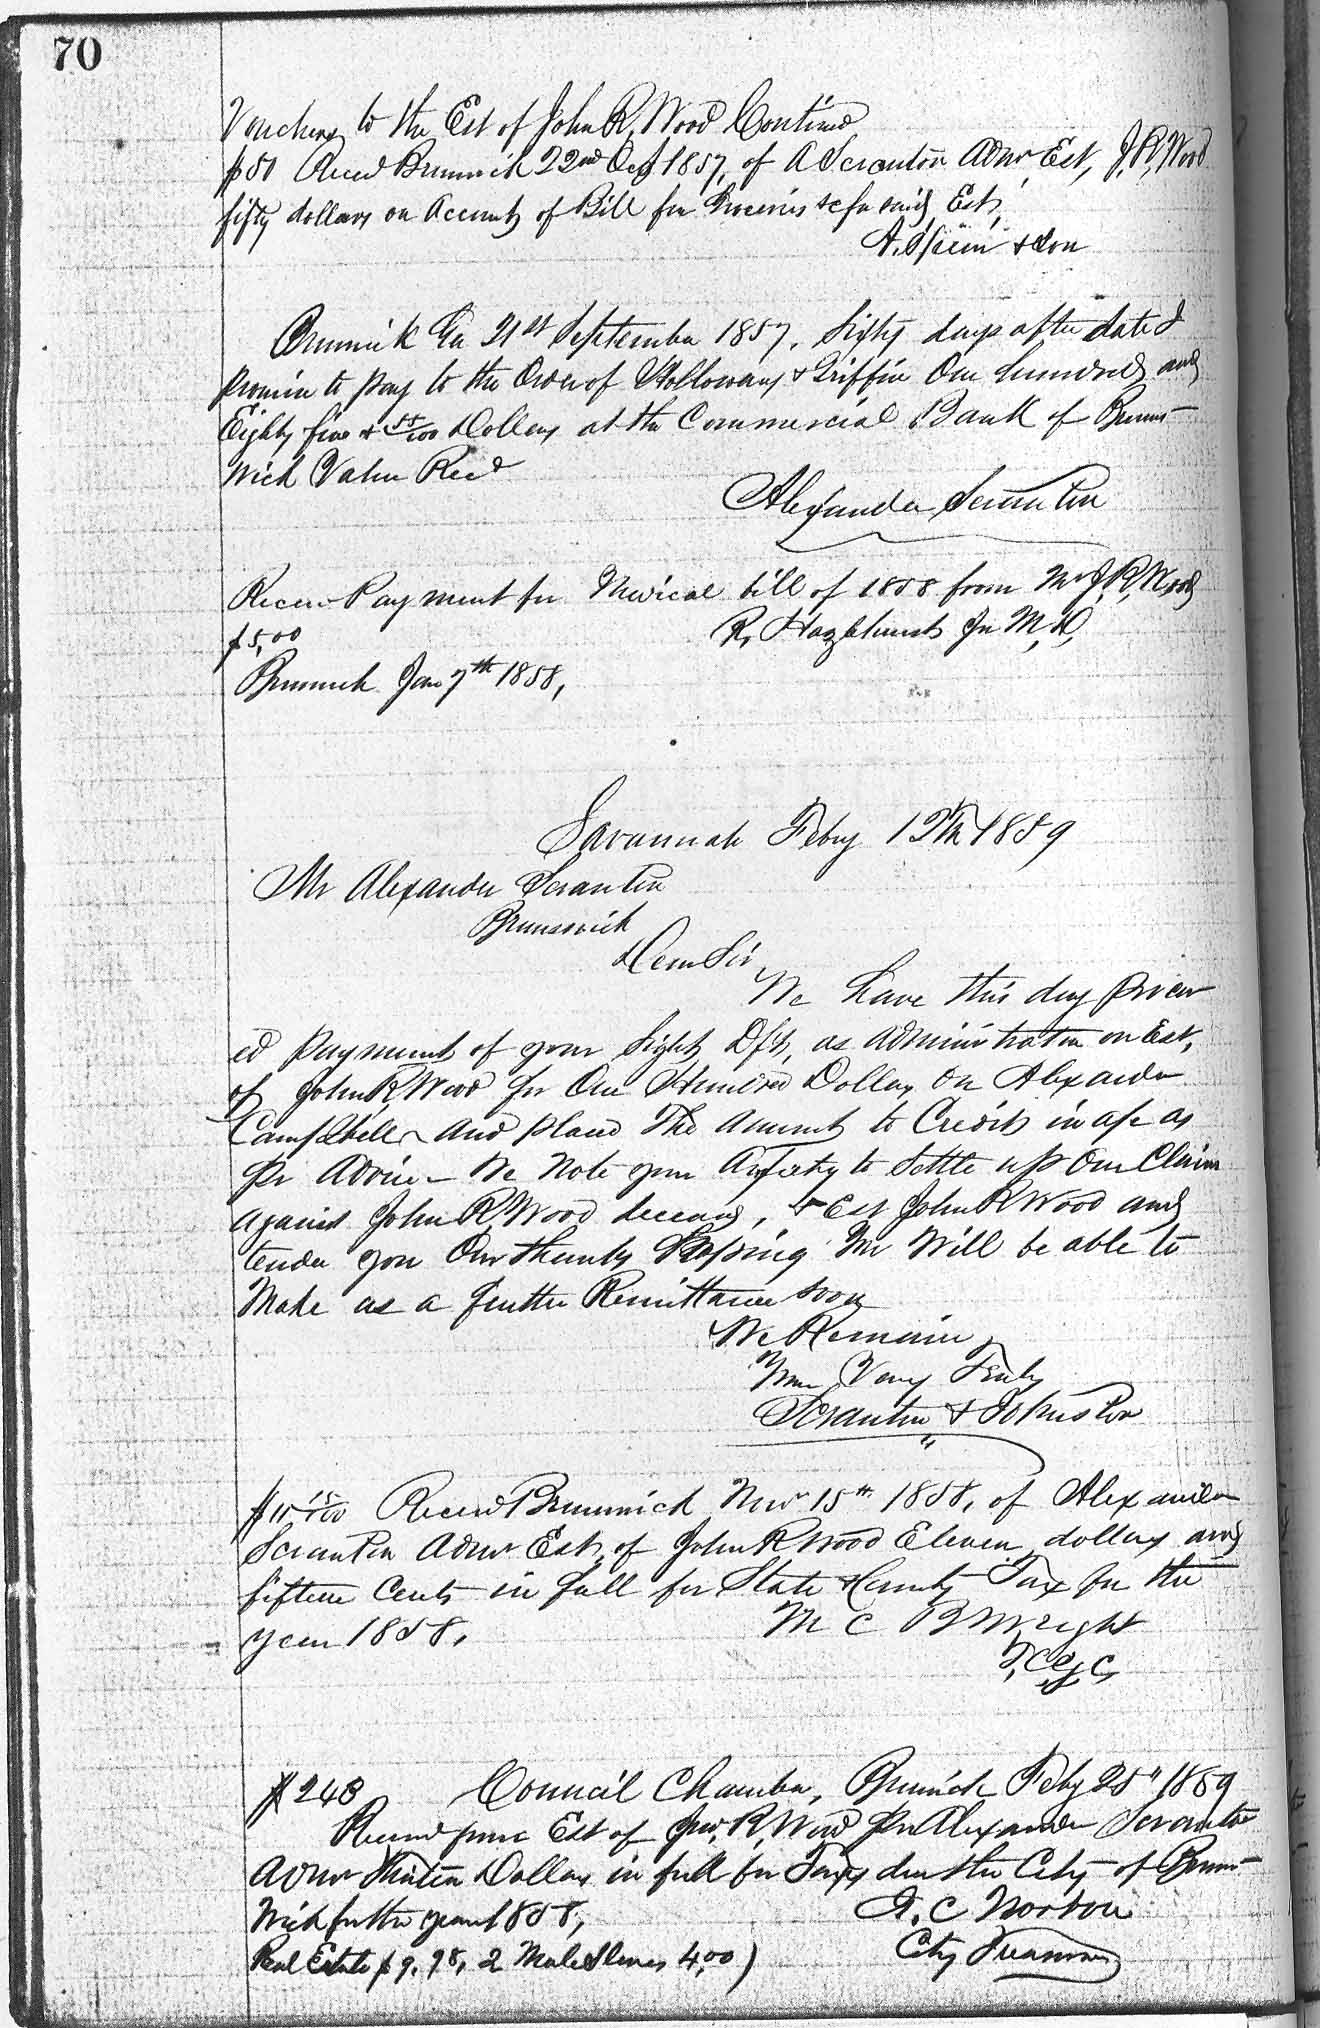 70
Vouchers to the Est of John R, Wood Continued
$50 Recvd Brunswick 22nd Oct 1857, of A Scranton Admr Est, J, R, Wood
fifty dollars on Account of Bill for Groceries &c for said Est,
& Son
Brunswick Ga 21st September 1857, Sixty days after date I
Promise to pay to the Order of Holloway & Griffin One hundred and
Eighty five & 55/100 Dollars at the Commercial Bank of Bruns-
wick Value Recd
Alexander Scranton
Recvd Payment for Medical bill of 1858 from Mr J, R, Wood
$5,00
R, Hazlehurst Jr M, D,
Brunswick Jan 7th 1858,
Savannah Feby 12th 1859
Mr Alexander Scranton
Brunswick
Dear Sir,
We have this day procur
ed payment of your Sight Dft, as Administrator on Est,
of John R, Wood for One Hundred Dollars on Alexander
Campbell and placed The Amount to Credit in a/c as
Pr Advice - We Note your to Settle up Our Claim
against John R, Wood deceasd, & Est John R Wood and
tender you Our thanks Hoping Will be able to
Make us a further Remittance soon
We Remain
Very Truly
Scranton & Johnston
$11 15/100 Recvd Brunswick Nov 15th 1858, of Alexander
Scranton Admr Est, of John R Wood Eleven dollars and
fifteen Cents in full for State & County Tax for the
year 1858,
M C B Wright
$ 248 Council Chamber, Brunswick Feby 25" 1859
Recvd from Est of Jno, R, Wood Pr Alexander Scranton
Admr Dollars in full for Taxes due the City of Bruns-
wick for the year 1858,
A. C Norton
Real Estate $9.98, 2 Male Slaves 4,00)
City Treasurer